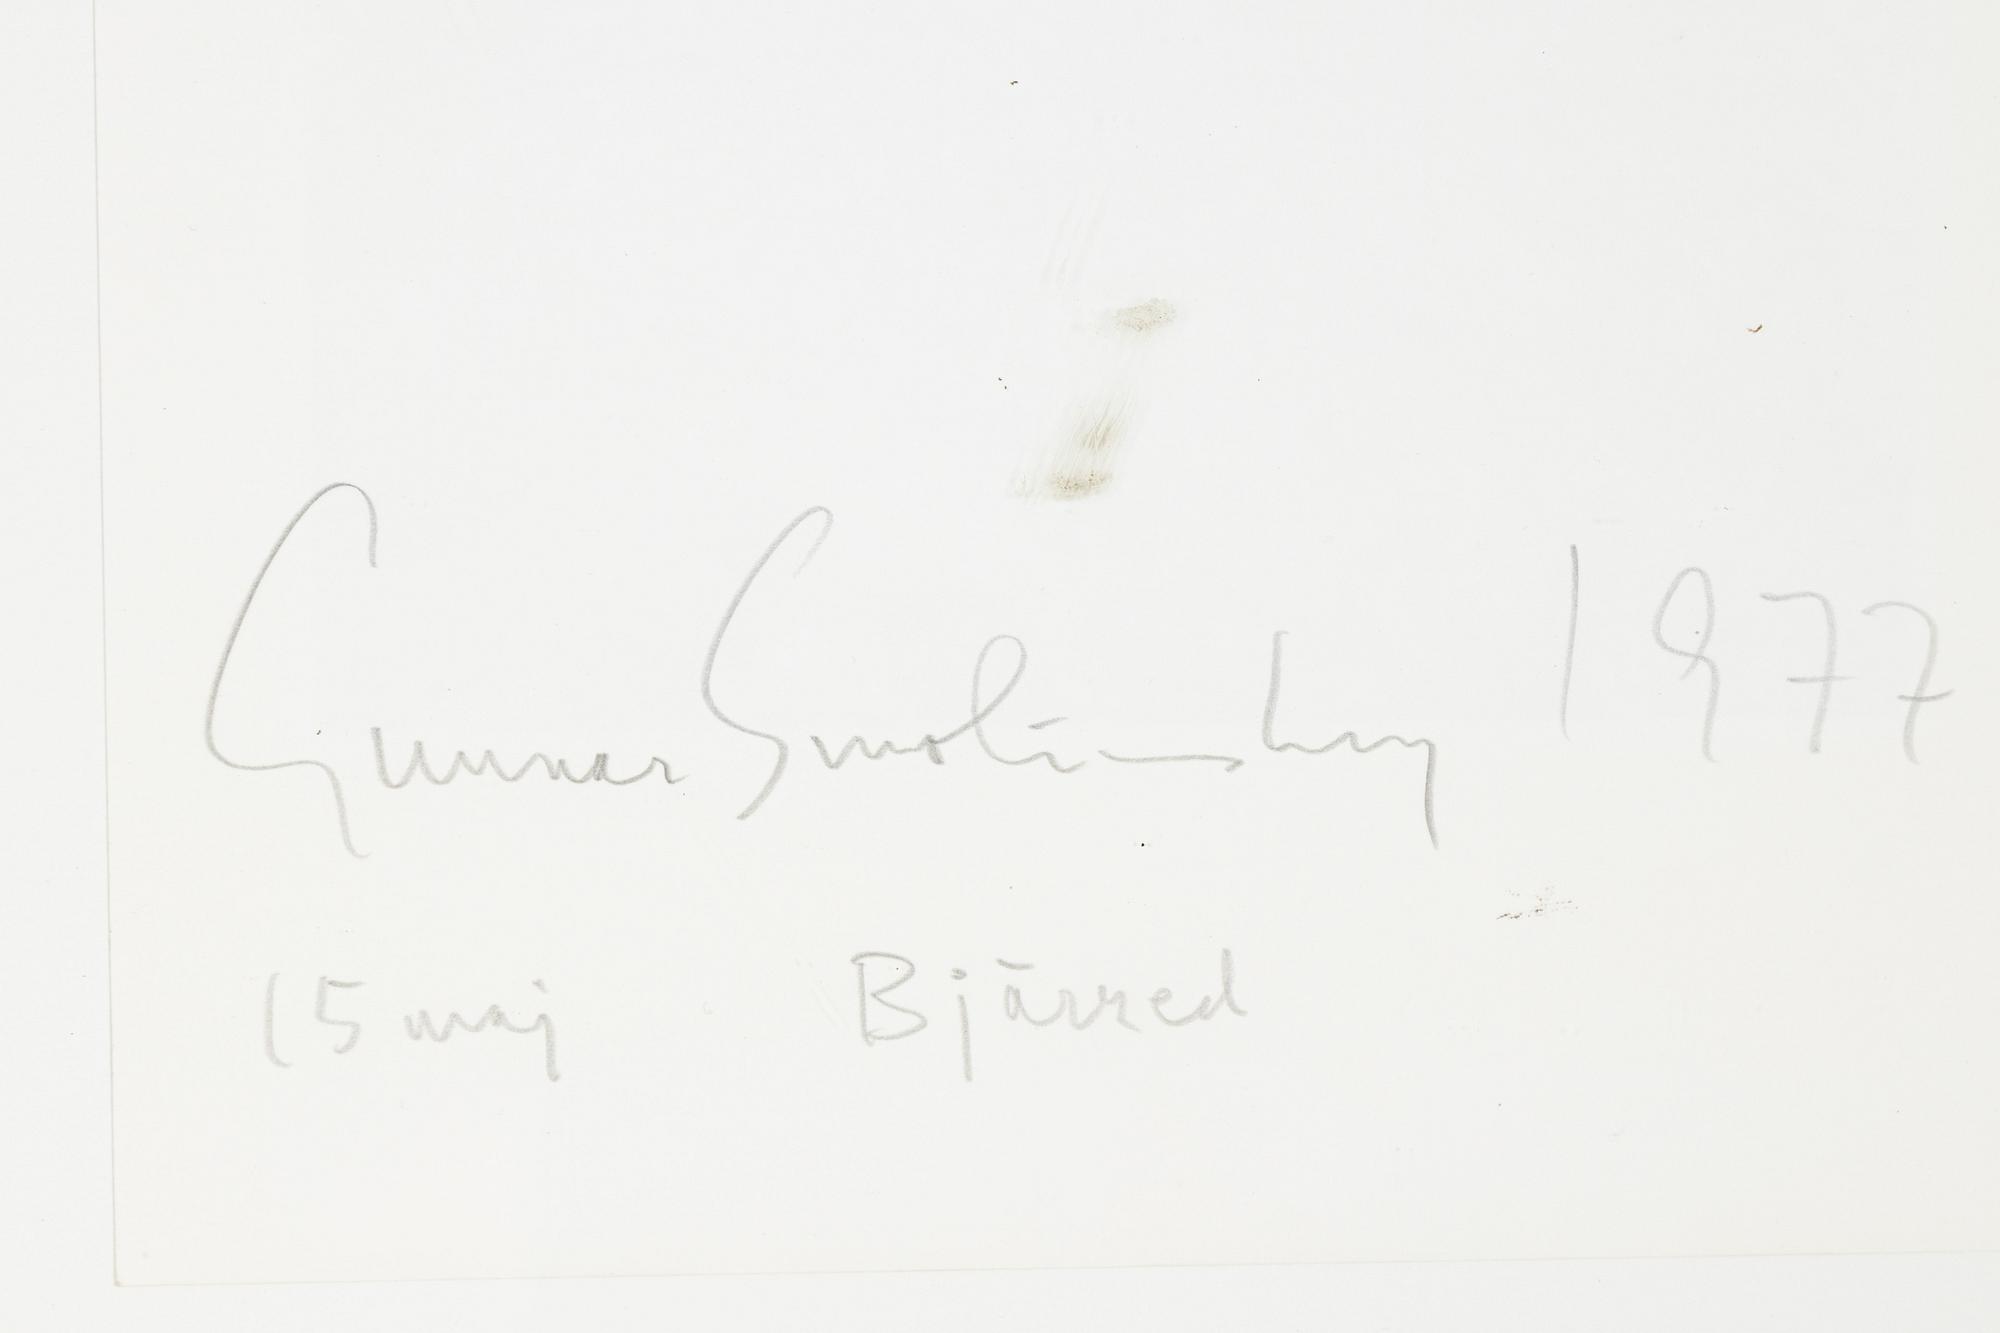 Gunnar Smoliansky 1977
15 maj Bjärred